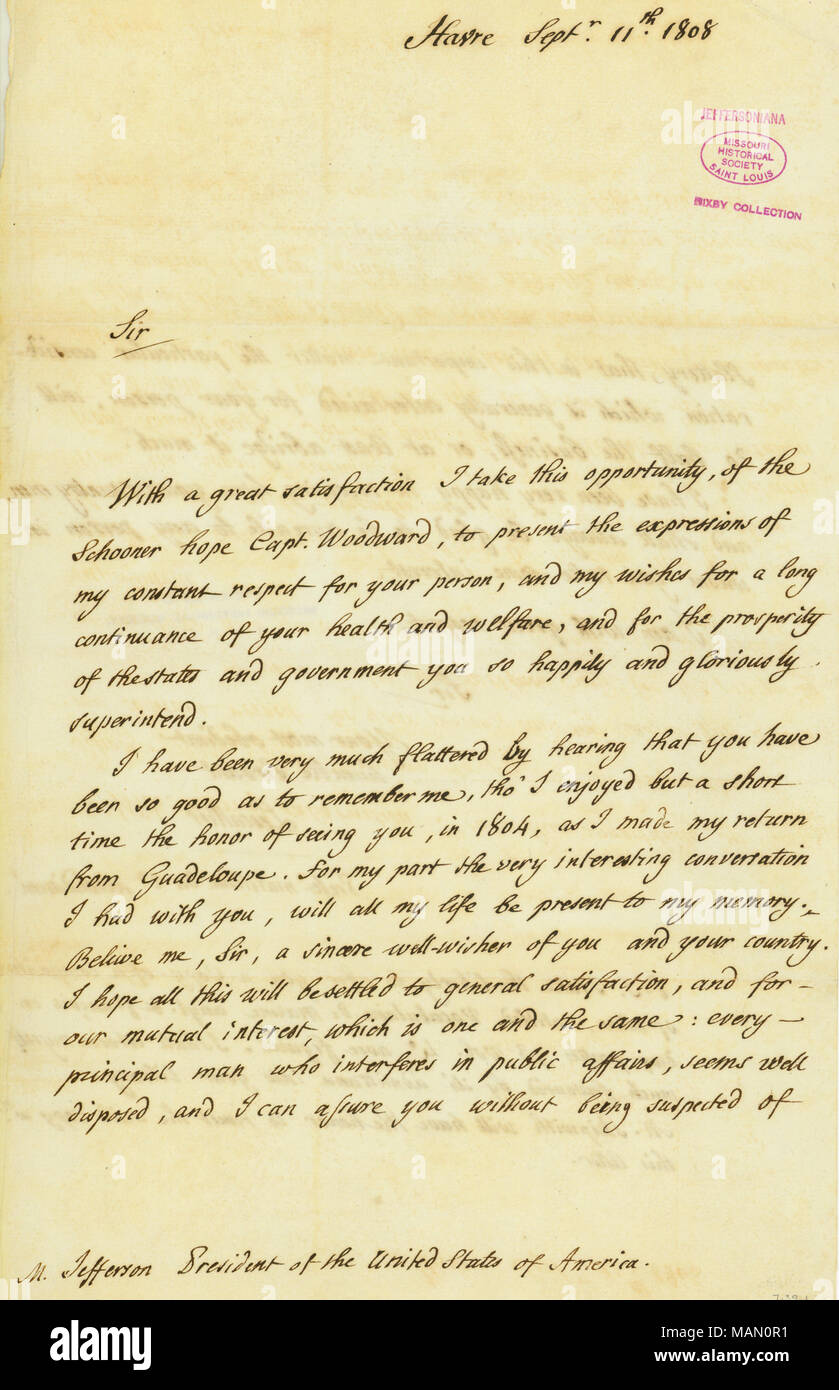 Havre Sept.r 11th. 1808
JEFFERSONIANA
MISSOURI
HISTORICAL
SOCIETY
SAINT LOUIS
BIXBY COLLECTION
Sir
With a great satisfaction I take this opportunity, of the
Schooner hope Capt. Woodward, to present the expressions of
my constant respect for your person, and my wishes for a long
continuance of your health and welfare, and for the prosperity
of the states and government you so happily and gloriously
superintend.
I have been very much flattered by hearing that you have
been so good as to remember me, tho' I enjoyed but a short
time the honor of seeing you, in 1804, as I made my return
from Guadeloupe. For my part the very interesting conversation
I had with you, will all my life be present to my memory.
Believe me, Sir, a sincere well-wisher of you and your country.
I hope all this will be settled to general satisfaction, and for-
our mutual interest, which is one and the same: every-
principal man who interferes in public affairs, seems well
disposed, and I can assure you without being suspected of
M. Jefferson President of the United States of America.
alamy
Image ID: MAN0R1
www.alamy.com